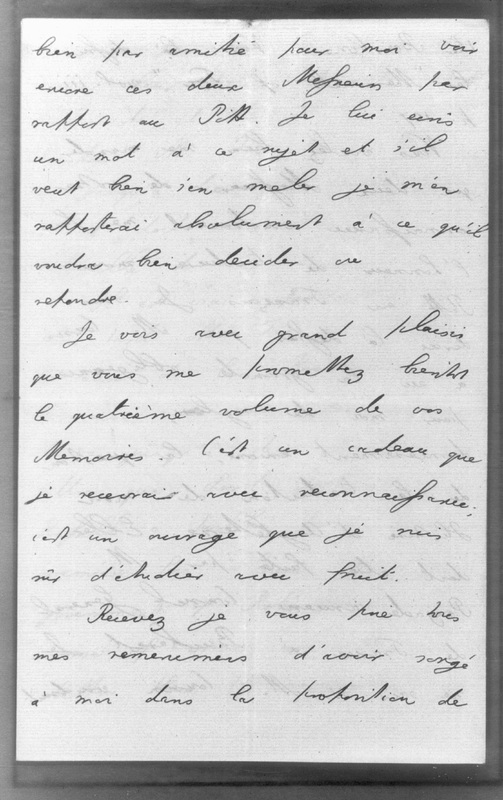 bien par amitié pour moi voir
encore ces deux Messieurs par
rapport au Pitt. Je lui écris
un mot à ce sujet et s'il
veut bien s'en mêler je m'en
rapporterai absolument à ce qu'il
voudra bien décider ou
repondre.
Je vois avec grand plaisir
que vous me promettez bientot
le quatrième volume de vos
Memoires. C'est un cadeau que
je recevrai avec reconnaissance;
c'est un ouvrage que je suis
sûr d'étudier avec fruit.
Recevez je vous prie tous
mes remercimens d'avoir songé
à moi dans la proposition de